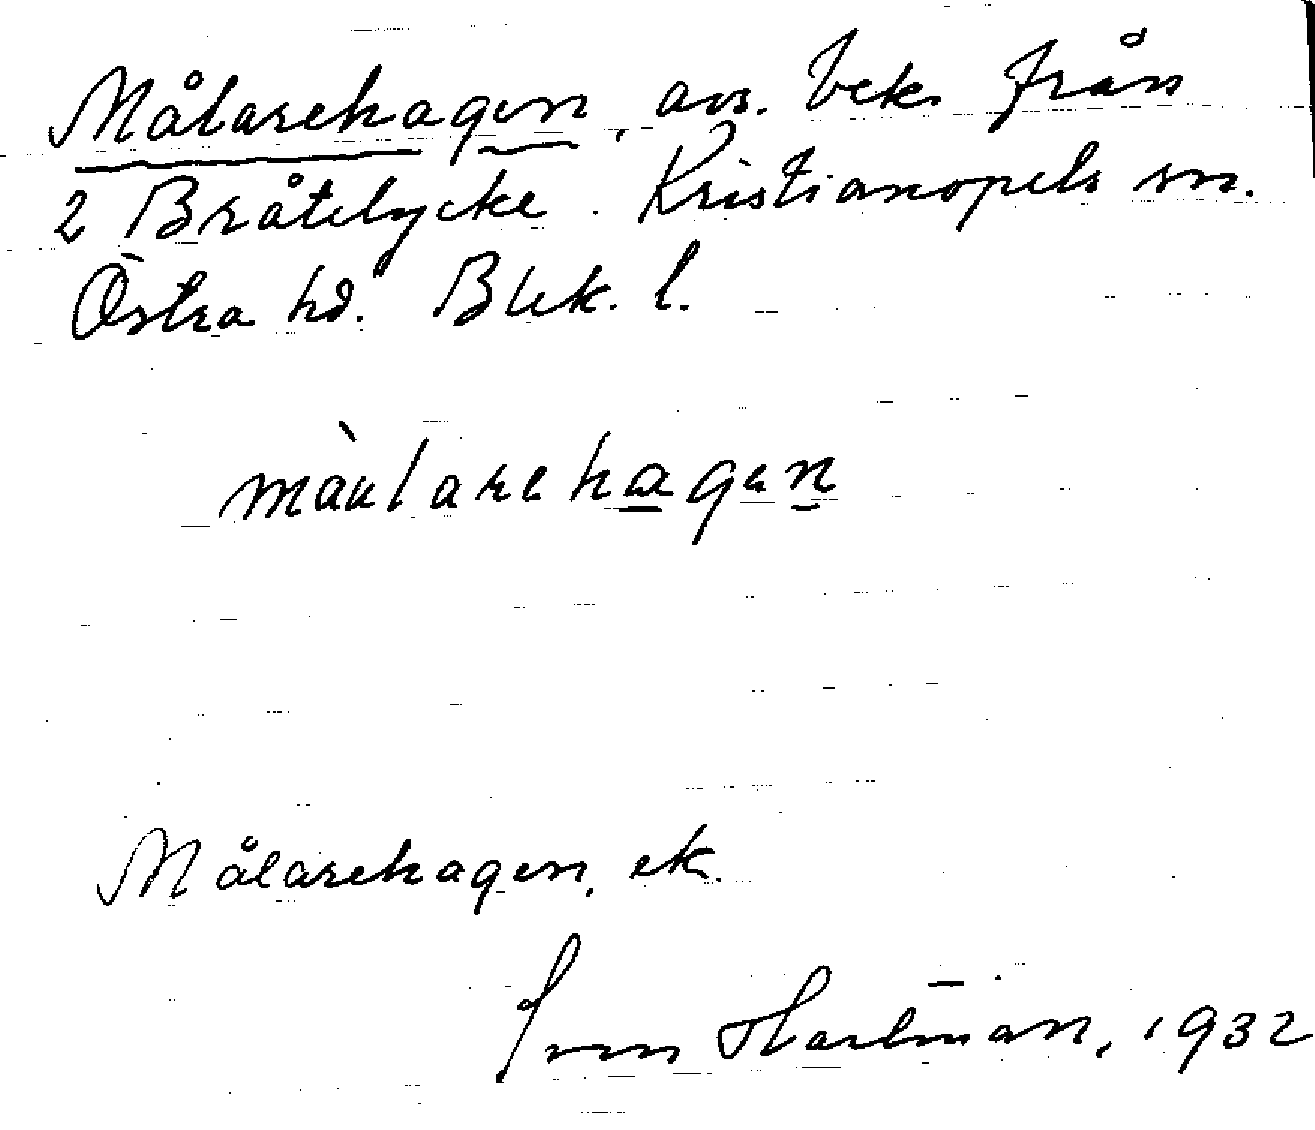 Målarehagen, avs. bek. från
2 Bråtelycke. Kristianopels sn.
Östra hd. Blek. l.
màularehagen
Målarehagen, ek.
Sven Hartman, 1932